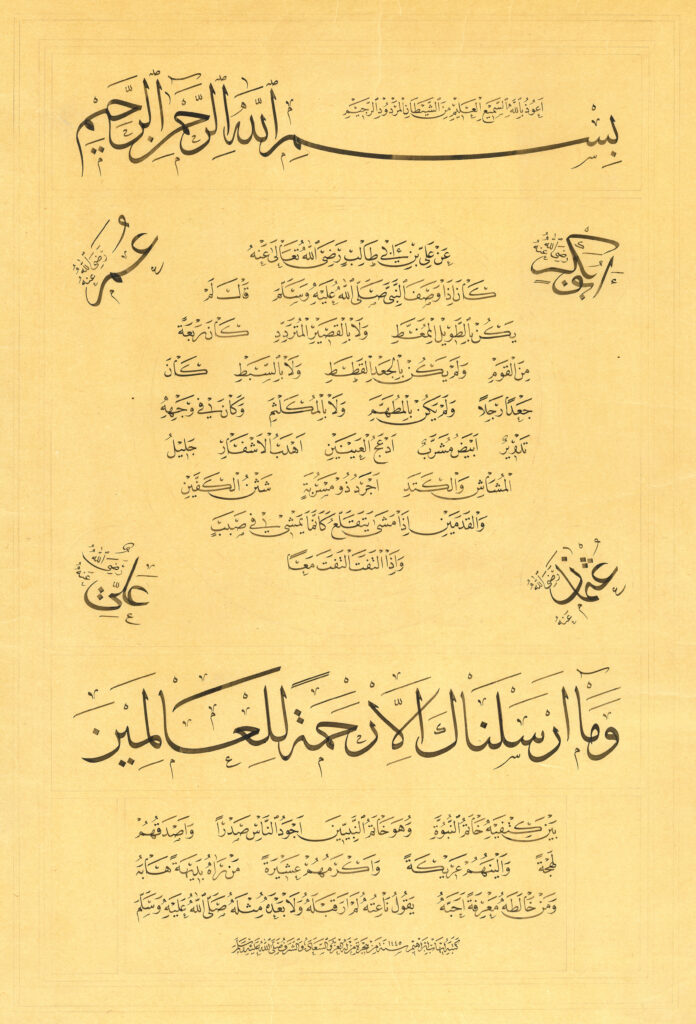 اعوذ بالله السميع العليم من الشيطان المردود الرجيم
بسم الله الرحمن الرحيم
ابو بكر رضي الله عنه
عمر رضي الله عنه
عن علي بن ابي طالب رضي الله تعالى عنه
كان اذا وصف النبي صلى الله عليه وسلم قال لم
يكن بالطويل الممغط ولا بالقصير المتردد كان ربعة
من القوم ولم يكن بالجعد القطط ولا بالسبط كان
جعدا رجلا ولم يكن بالمطهم ولا بالمكلثم وكان في وجهه
تدوير ابيض مشرب ادعج العينين اهدب الاشفار جليل
المشاش والكتد اجرد ذو مسربة شثن الكفين
والقدمين اذا مشى يتقلع كانما يمشي في صبب
واذا التفت التفت معا
عثمان رضي الله عنه
علي رضي الله عنه
وما ارسلناك الا رحمة للعالمين
بين كتفيه خاتم النبوة وهو خاتم النبيين اجود الناس صدرا واصدقهم
لهجة والينهم عريكة واكرمهم عشيرة من راه بديهة هابه
ومن خالطه معرفة احبه يقول ناعته لم ار قبله ولا بعده مثله صلى الله عليه وسلم
كتبه ابراهيم سنة ١٤٤٥ من هجرة من له العز والسعادة والشرف صلى الله عليه وسلم